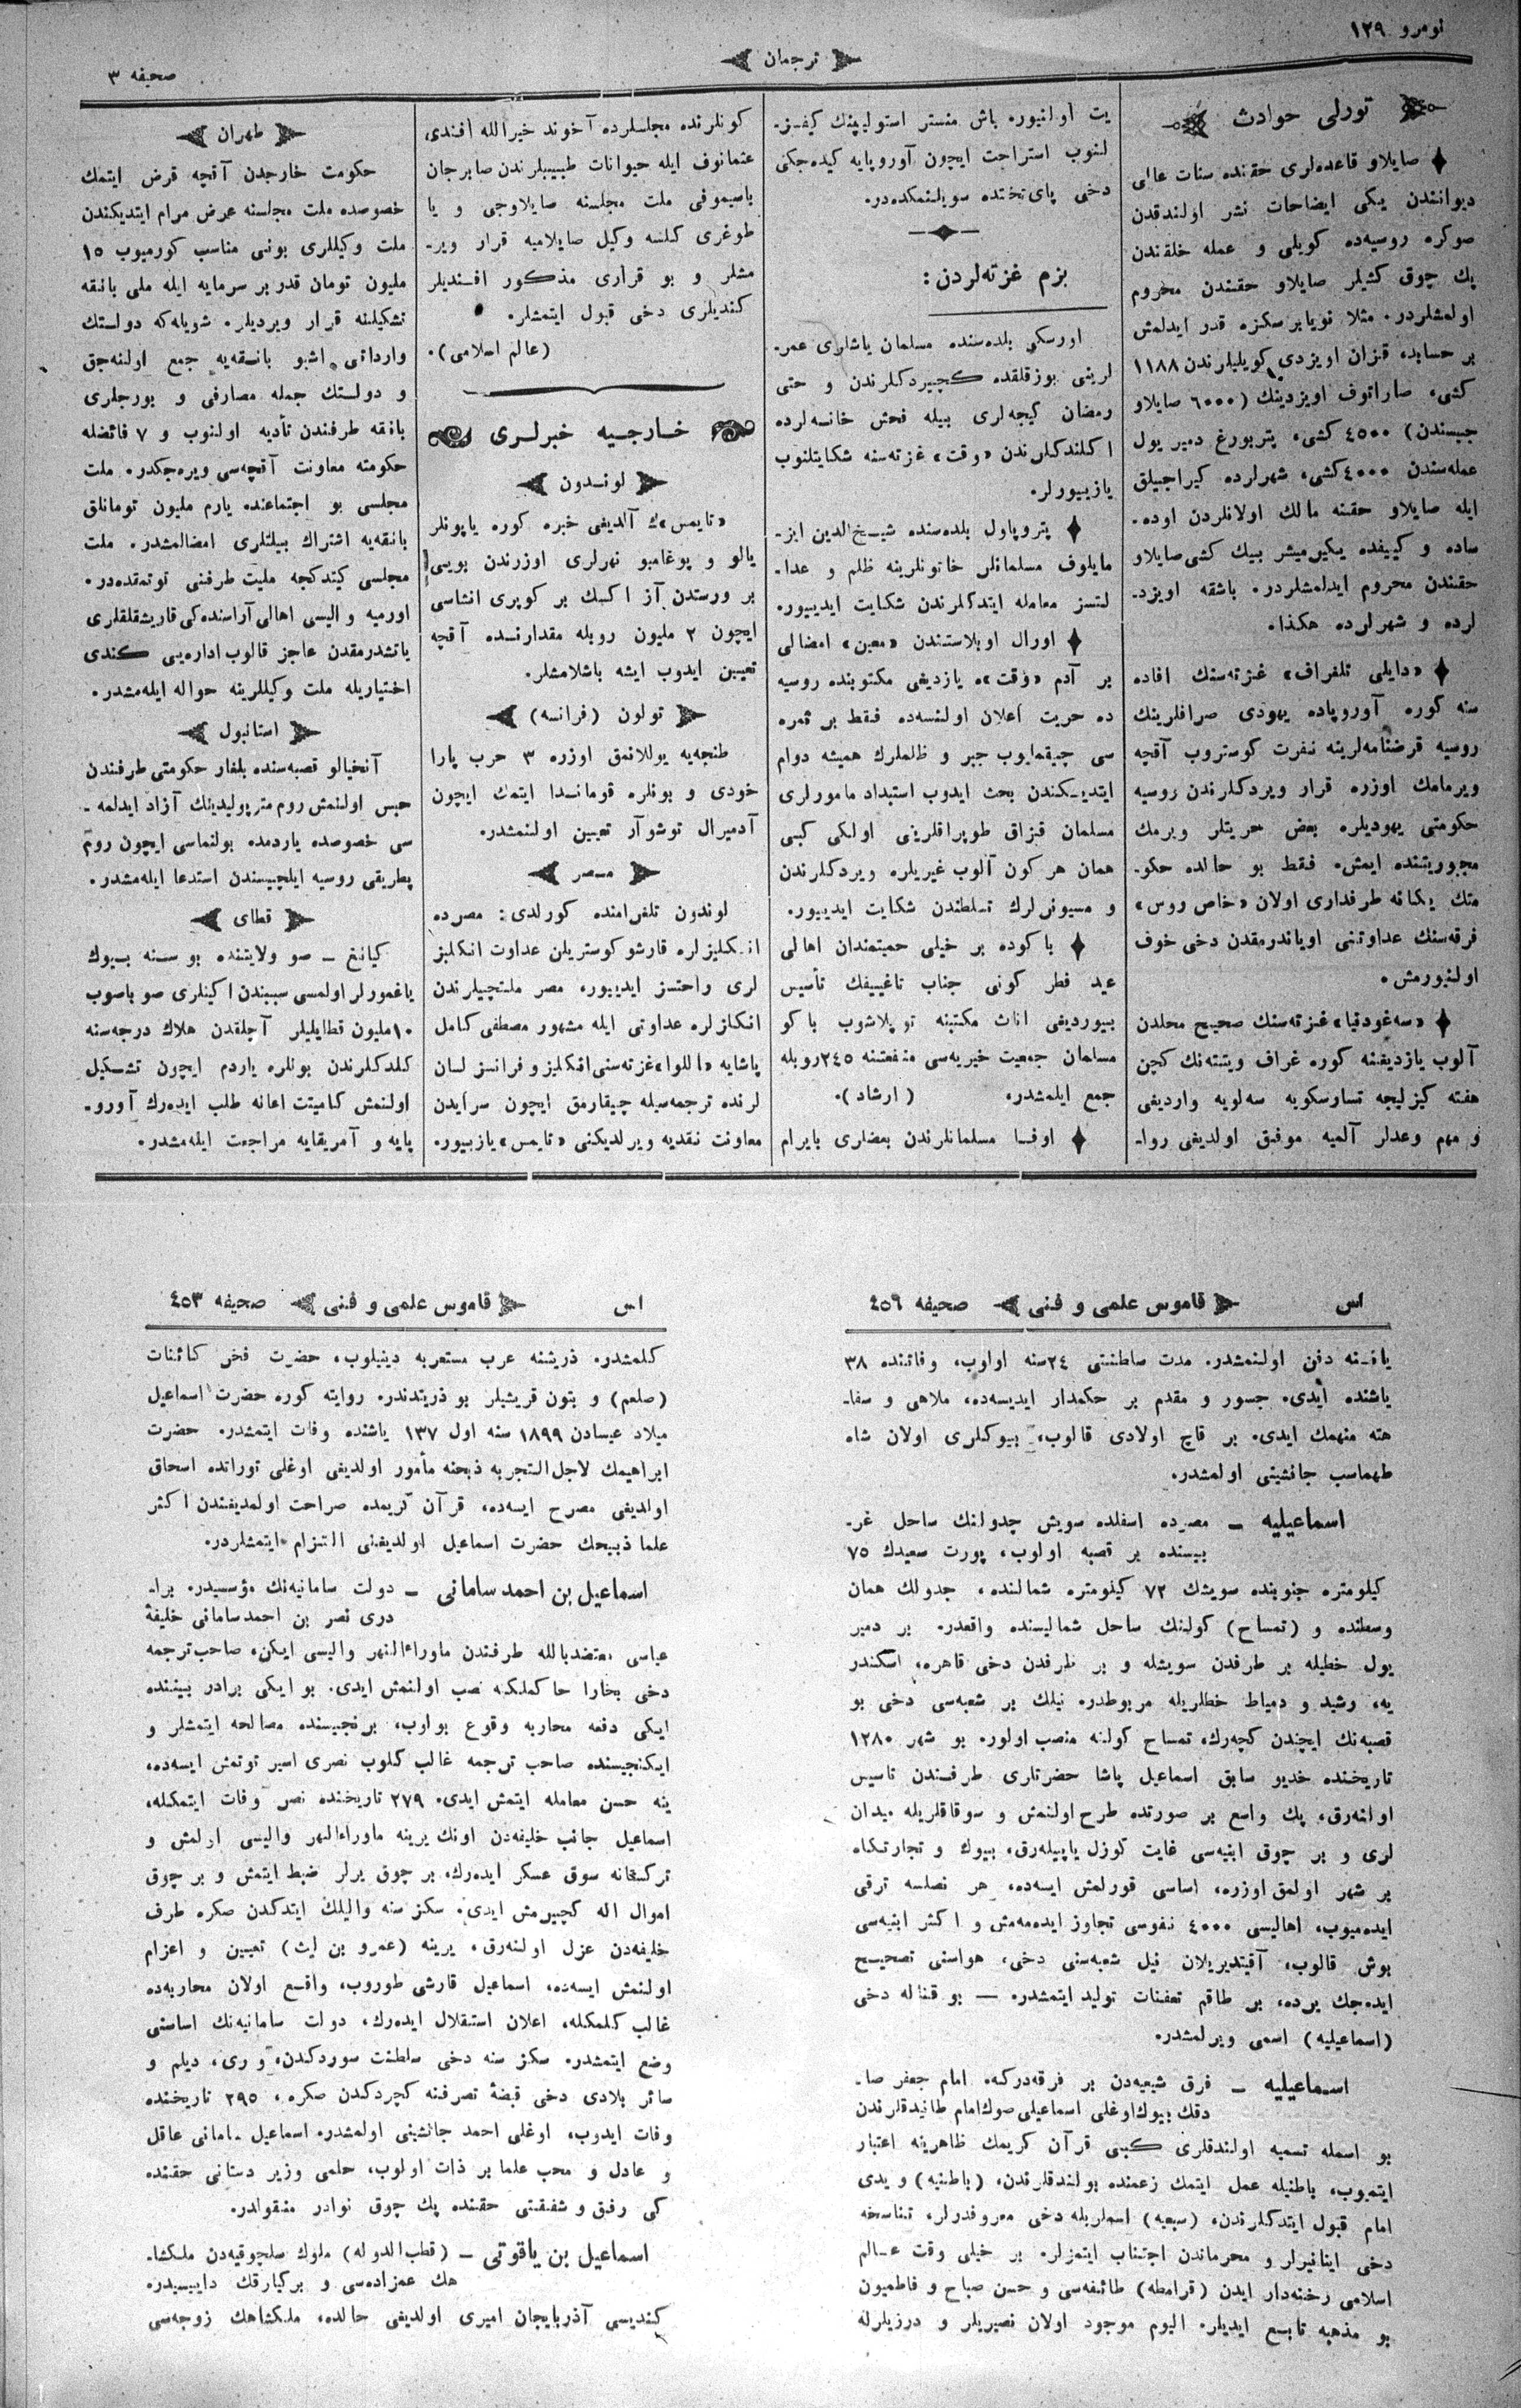 نومرو ١٢٩
ترجمان
صحیفه ٣
تورلی حوادث
صایلاو قاعده‌لری حقنده سنات عالی
دیواننندن یکی ایضاحات نشر اولندقدن
صوکره روسیه‌ده کویلی و عمله خلقندن
پك چوق کشیلر صایلاو حقندن محروم
اولمشلردر. مثلا تویابر سکزه قدر ایدلمش
بر حسابده قزان اویزدی کویلیلرندن ١١٨٨
کشی، صاراتوف اویزدینك (٦٠٠٠ صایلاو
جیسندن) ٤٥٠٠ کشی، پتربورغ دمیر یول
عمله‌سندن ٤٠٠٠ کشی، شهرلرده کیراجیلق
ایله صایلاو حقنه مالك اولانلردن اوده‌ـ
ساده و کییفده یکیرمیشر بیك کشی صایلاو
حقندن محروم ایدلمشلردر. باشقه اویزدـ
لرده و شهرلرده هکذا.
«دایلی تلغراف» غزته‌سنك افاده
سنه کوره آوروپاده یهودی صرافلرینك
روسیه قرضنامه‌لرینه نفرت کوستروب آقچه
ویرمامك اوزره قرار ویردکلرندن روسیه
حکومتی یهودیلره بعض حریتلر ویرمك
مجبوریتنده ایمش. فقط بو حالده حکوـ
متك یکانه طرفداری اولان «خاص روس»
فرقه‌سنك عداوتنی اویاندرمقدن دخی خوف
اولنیورمش.
«سه‌غودنیا» غزته‌سنك صحیح محلدن
آلوب یازدیغنه کوره غراف ویتته‌نك کچن
هفته کیزلیجه تسارسکویه سه‌لویه واردیغی
و مهم وعدلر آلمیه موفق اولدیغی رواـ
یت اولنیوره باش منستر استولیپنك کیفـزـ
لنوب استراحت ایچون آوروپایه کیده‌جکی
دخی پای تختده سویلنمکده‌در.
بزم غزته‌لردن:
اورسکی بلده‌سنده مسلمان یاشلری عمرـ
لرینی بوزقلقده کچیردکلرندن و حتی
رمضان کیجه‌لری بیله فحش خانه‌لرده
اکلندکلرندن «وقت» غزته‌سنه شکایتلنوب
یازیییورلر.
پتروپاول بلده‌سنده شیخ الدین ایزـ
مایلوف مسلمانلر خاتونلرینه ظلم و عداـ
لتسز معامله ایتدکلرندن شکایت ایدییور.
اورال اوبلاستندن «معین» امضالی
بر آدم «وقت»ه یازدیغی مکتوبنده روسیه
ده حریت اعلان اولنسه‌ده فقط بر ثمره
سی چیقمایوب جبر و ظلملرك همیشه دوام
ایتدیـکندن بحث ایدوب استبداد مامورلری
مسلمان قزاق طوپراقلرینی اولکی کبی
همان هر کون آلوب غیریلره ویردکلرندن
و مسیونرلرك تسلطندن شکایت ایدییور.
باکوده بر خیلی حمیتمندان اهالی
عید فطر کونی جناب تاغییفك تأسیس
بیوردیغی اناث مکتبنه توپلاشوب باکو
مسلمان جمعیت خیریه‌سی منفعتنه ٢٤٥ روبله
جمع ایلمشدر. (ارشاد).
اوفـا مسلمانلرندن بعضلری بایرام
کونلرنده مجلسلرده آخوند خیرالله افندی،
عثمانوف ایله حیوانات طبیبلرندن صابرجان
باسیموفی ملت مجلسنه صایلاوجی و یا
طوغری کلسه وکیل صایلامیه قرار ویرـ
مشلر و بو قراری مذکور افـندیلر
کندیلری دخی قبول ایتمشلر.
(عالم اسلامی).
خـارجـیه خبرلـری
لونـدون
«تایمس»ك آلدیغی خبره کوره یاپونلر
یالو و یوغامبو نهرلری اوزرندن بویی
بر ورستدن آز اکسك بر کوپری انشاسی
ایچون ٢ ملیون روبله مقدارنـده آقچه
تعیین ایدوب ایشه باشلامشلر.
تولون (فرانسه)
طنجه‌یه یوللانمق اوزره ٣ حرب پارا
خودی و بونلره قومانـدا ایتمك ایچون
آدمیرال توشوآر تعیین اولنمشدر.
مـصر
لوندون تلغرامنده کورلدی: مصرده
انـکلیزلره قارشو کوستریلن عداوت انکلیز
لری راحتسز ایدییور، مصر ملتچیلرندن
انکلزلره عداوتی ایله مشهور مصطفی کامل
پاشایه «اللوا» غزته‌سنی انکلیز و فرانسز لسان
لرنده ترجمه‌سیله چیقارمق ایچون سرایدن
معاونت نقدیه ویرلدیکنی «تایمس» یازییور.
طهران
حکومت خارجدن آقچه قرض ایتمك
خصوصده ملت مجلسنه عرض مرام ایتدیکندن
ملت وکیللری بونی مناسب کورمیوب ١٥
ملیون تومان قدر بر سرمایه ایله ملی بانقه
تشکیلنه قرار ویردیلر. شویله‌که دولتك
وارداتی اشبو بانـقه‌یه جمع اولنه‌جق
و دولتك جمله مصارفی و بورجلری
بانقه طرفندن تأدیه اولنوب و ٧ فائضله
حکومته معاونت آقچه‌سی ویره‌جکدر. ملت
مجلسی بو اجتماعنده یارم ملیون تومانلق
بانقه‌یه اشتراك بیلتلری امضالمشدر. ملت
مجلسی کیتدکجه ملیت طرفنی توتمقده‌در.
اورمیه والیسی اهالی آراسنده‌کی قاریشقلقلری
یاتشدرمقدن عاجز قالوب اداره‌یی کندی
اختیاریله ملت وکیللرینه حواله ایله‌مشدر.
استانبول
آنخیالو قصبه‌سنده بلغار حکومتی طرفندن
حبس اولنمش روم متر پولیدینك آزاد ایدلمه‌ـ
سی خصوصده یاردمده بولنماسی ایچون روم
پطریقی روسیه ایلچیسندن استدعا ایله‌مشدر.
قطای
کیانغ ــ صو ولایتنده بو سـنه بـیوك
یاغمورلر اولمسی سببندن اکینلری صو باصوب
١٠ ملیون قطایلیلر آچلقدن هلاك درجه‌سنه
کلدکلرندن بونلره یاردم ایچون تشـکیل
اولنمش کامیتت اعانه طلب ایده‌رك آوروـ
پایه و آمریقایه مراجعت ایله‌مشدر.
اس
قاموس علمی و فنی
صحیفه ٤٥٩
یانـنه دفن اولنمشدر. مدت سلطنتی ٢٤ سنه اولوب، وفاتنده ٣٨
یاشنده ایدی. جسور و مقدم بر حکمدار ایدیسه‌ده، ملاهی و سفاـ
هته منهمك ایدی. بر قاچ اولادی قالوب، بیوکلری اولان شاه
طهماسب جانشینی اولمشدر.
اسماعیلیه ــ مصرده اسفلده سویش جدولنك ساحل غرـ
بیسنده بر قصبه اولوب، پورت سعیدك ٧٥
کیلومتره جنوبنده سویشك ٧٢ کیلومتره شمالنده، جدولك همان
وسطنده و (تمساح) کولنك ساحل شمالیسنده واقعدر. بر دمیر
یول خطیله بر طرفدن سویشله و بر طرفدن دخی قاهره، اسکندر
یه، رشید و دمیاط خطلریله مربوطدر. نیلك بر شعبه‌سی دخی بو
قصبه‌نك ایچندن کچه‌رك، تمساح کولنه منصب اولور. بو شهر ١٢٨٠
تاریخنده خدیو سابق اسماعیل پاشا حضرتلری طرفـندن تاسیس
اولنه‌رق، پك واسع بر صورتده طرح اولنمش و سوقاقلریله میدان
لری و بر چوق ابنیه‌سی غایت کوزل یاپیله‌رق، بیوك و تجارتکاه
بر شهر اولمق اوزره، اساسی قورلمش ایسه‌ده، هر نصلسه ترقی
ایده‌میوب، اهالیسی ٤٠٠٠ نفوسی تجاوز ایده‌مه‌مش و اکثر ابنیه‌سی
بوش قالوب، آقیتدیریلان نیل شعبه‌سنی دخی، هواسنی تصحیـح
ایده‌جك یرده، بر طاقم تعفنات تولید ایتمشدر. — بو قناله دخی
(اسماعیلیه) اسمی ویرلمشدر.
اسـماعیلیه ــ فرق شیعیه‌دن بر فرقه‌درکه، امام جعفر صاـ
دقك بیوك اوغلی اسماعیلی صوك امام طانیدقلرندن
بو اسمله تسمیه اولندقلری کبی قرآن کریمك ظاهرینه اعتبار
ایتمیوب، باطنیله عمل ایتمك زعمنده بولندقلرندن، (باطنیه) و یدی
امام قبول ایتدکلرندن، (سبعیه) اسملریله دخی معروفدرلر، تناسخه
دخی اینانیرلر و محرماتدن اجتناب ایتمزلر. بر خیلی وقت عـالم
اسلامی رخنه‌دار ایدن (قرامطه) طائفه‌سی و حسن صباح و فاطمیون
بو مذهبه تابـع ایدیلر. الیوم موجود اولان نصیریلر و درزیلرله
اس
قاموس علمی و فنی
صحیفه ٤٥٣
کلمشدر. ذریتنه عرب مستعربه دینیلوب، حضرت فخر کائنات
(صلعم) و بتون قریشیلر بو ذریتدندر. روایته کوره حضرت اسماعیل
میلاد عیسادن ١٨٩٩ سنه اول ١٣٧ یاشنده وفات ایتمشدر. حضرت
ابراهیمك لاجل التجربه ذبحنه مأمور اولدیغی اوغلی توراتده اسحاق
اولدیغی مصرح ایسه‌ده، قرآن کریمده صراحت اولمدیغندن اکثر
علما ذبیحك حضرت اسماعیل اولدیغنی التزام ایتمشلردر.
اسماعیل بن احمد سامانی ــ دولت سامانیه‌نك مؤسسیدر. براـ
دری نصر بن احمد سامانی خلیفهٔ
عباسی معتضدبالله طرفندن ماوراءالنهر والیسی ایکن، صاحب ترجمه
دخی بخارا حاکملکنه نصب اولنمش ایدی. بو ایکی برادر بیننده
ایکی دفعه محاربه وقوع بولوب، برنجیسنده مصالحه ایتمشلر و
ایکنجیسنده صاحب ترجمه غالب کلوب نصری اسیر توتمش ایسه‌ده،
ینه حسن معامله ایتمش ایدی. ٢٧٩ تاریخنده نصر وفات ایتمکله،
اسماعیل جانب خلیفه‌دن اونك یرینه ماوراءالنهر والیسی اولمش و
ترکستانه سوق عسکر ایده‌رك، بر چوق یرلر ضبط ایتمش و بر چوق
اموال اله کچیرمش ایدی. سکز سنه والیلك ایتدکدن صکره طرف
خلیفه‌دن عزل اولنه‌رق، یرینه (عمرو بن لیث) تعیین و اعزام
اولنمش ایسه‌ده، اسماعیل قارشی طوروب، واقـع اولان محاربه‌ده
غالب کلمکله، اعلان استقلال ایده‌رك، دولت سامانیه‌نك اساسنی
وضع ایتمشدر. سکز سنه دخی سلطنت سوردکدن، و ری، دیلم و
سائر بلادی دخی قبضهٔ تصرفنه کچردکدن صکره، ٢٩٥ تاریخنده
وفات ایدوب، اوغلی احمد جانشینی اولمشدر. اسماعیل سامانی عاقل
و عادل و محب علما بر ذات اولوب، حلمی وزیر دستانی حقنده
کی رفق و شفقتی حقنده پك چوق نوادر منقولدر.
اسماعیل بن یاقوتی ــ (قطب الدوله) ملوك سلجوقیه‌دن ملکشاـ
هك عمزاده‌سی و برکیارقك داییسیدر.
کندیسی آذربایجان امیری اولدیغی حالده، ملکشاهك زوجه‌سی